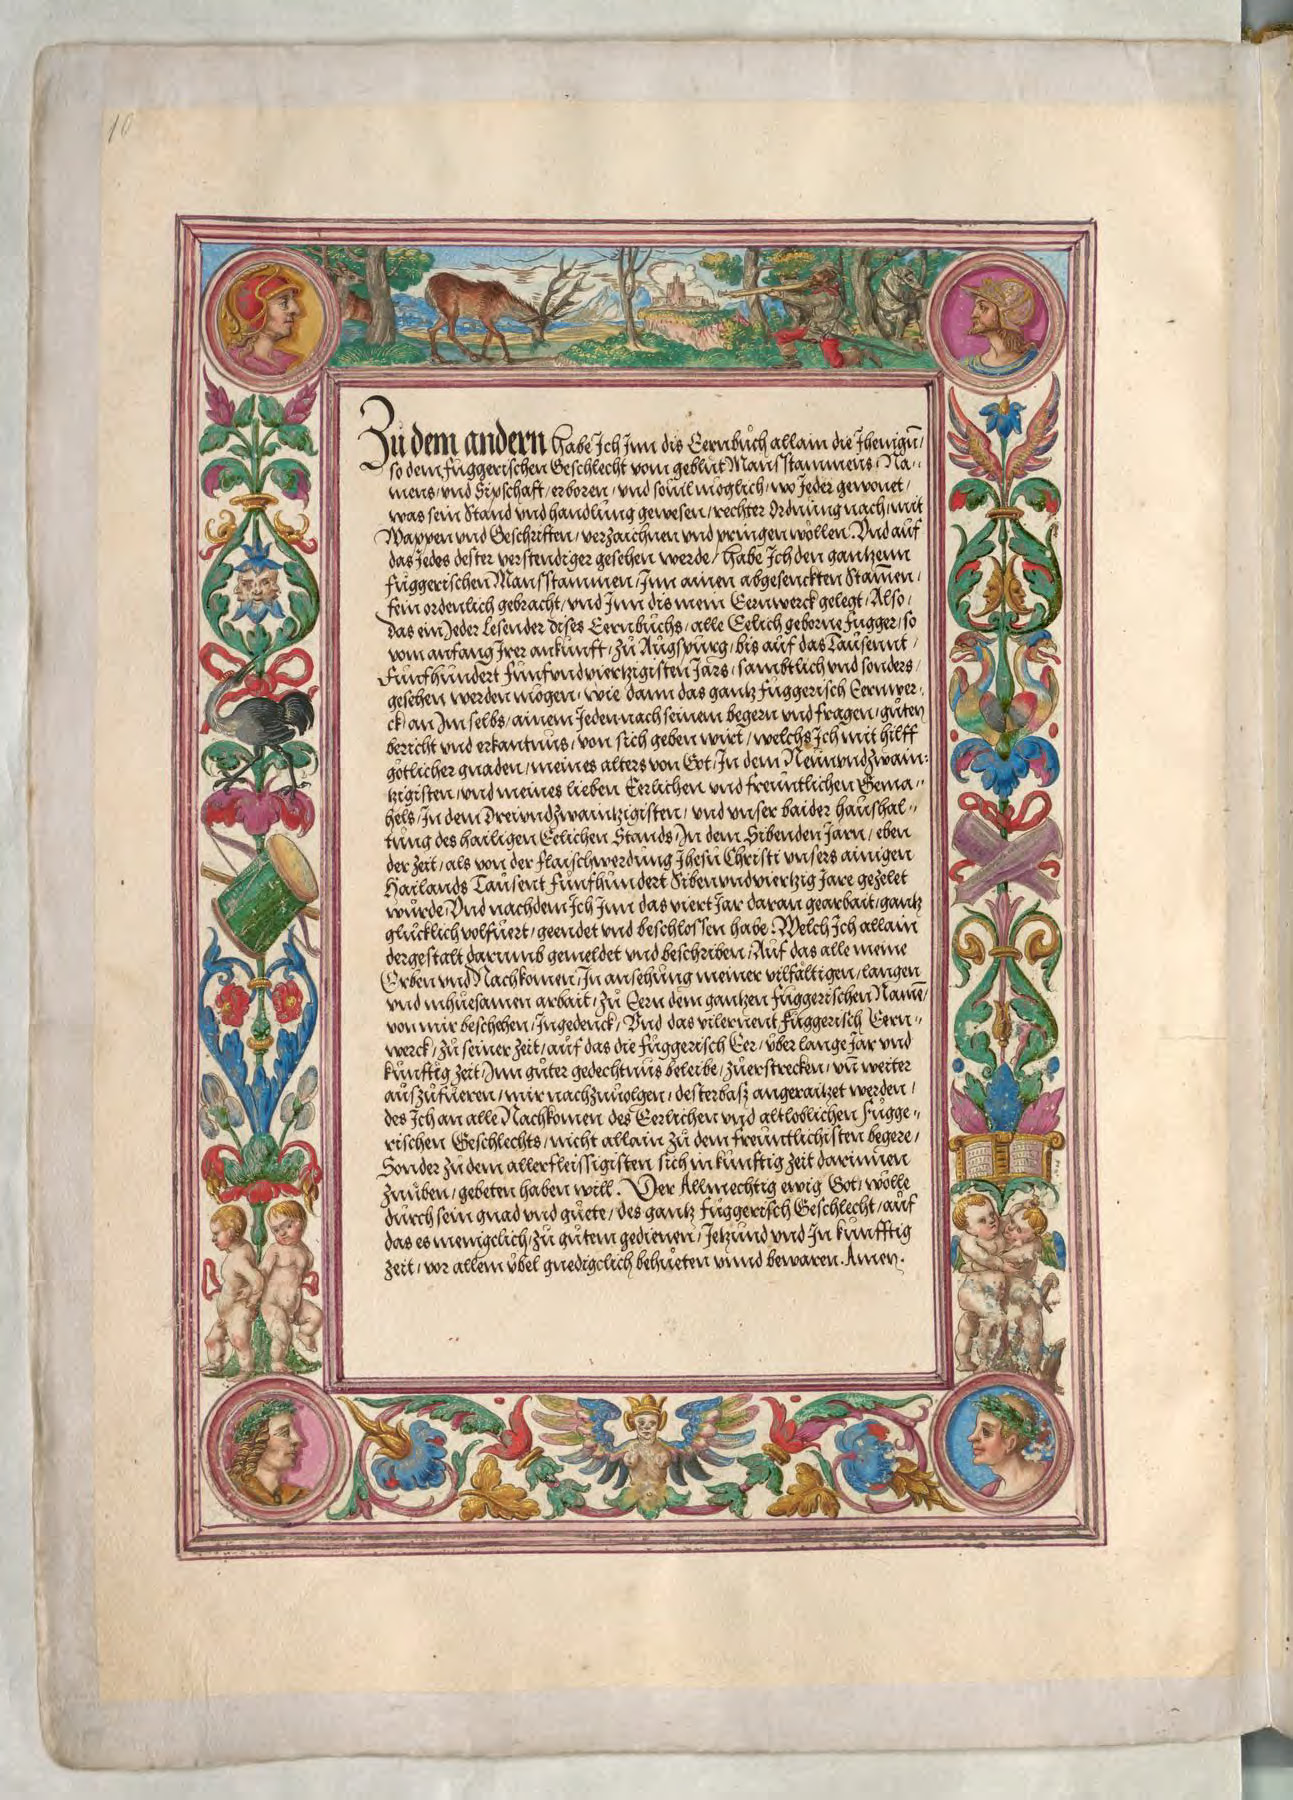 10
Zu dem andern habe Ich Inn dis Eernbuch allain die Jhenigñ/
so dem Fuggerischen Geschlecht vom geblut Mansstammens/Na„
mens/und Sipschaft/erboren/und sovil möglich/wo Jeder gewonet/
was sein Stand und handlung gewesen/rechter Ordnung nach/mit
Wappen und Geschriften/verzaichnen und pringen wöllen. Und auf
das Jedes dester verstendiger gesehen werde/habe Ich den gantzenn
Fuggerischen Mansstammen/Inn ainen abgesenckten Stam̄en/
fein ordenlich gebracht/und Inn dis mein Eernwerck gelegt/Also/
das ein Jeder Lesender dises Eernbuchs/alle Eelich geborne Fugger/so
vom anfang Irer ankunft/zu Augspurg/bis auf das Tausennt/
Funfhundert Funfundviertzigisten Jars/sambtlich und sonders/
gesehen werden mögen/wie dann das gantz Fuggerisch Eernwer„
ck/an Im selbs/ainem Jeden nach seinem begern und fragen/guten
bericht und erkantnus/von sich geben wirt/welchs Ich mit hilff
götlicher gnaden/meines alters von Got/In dem Neunundzwain„
tzigisten/und meines lieben Eerlichen und freuntlichen Gema„
hels/In dem Dreiundzwaintzigisten/und unser baider haushal„
tung des hailigen Eelichen Stands/In dem Sibenden Jarn/eben
der zeit/als von der flaischwerdung Jhesu Christi unsers ainigen
Hailands Tausent Funfhundert Sibenundviertzig Jare gezelet
wurde/Und nachdem Ich Inn das viert Jar daran gearbait/gantz
glucklich volfuert/geendet und beschlossen habe. Welch Ich allain
dergestalt darumb gemeldet und beschriben/Auf das alle meine
Erben und Nachkomen/In ansehung meiner vilfältigen/langen
und mhuesamen arbait/zu Eern dem gantzen Fuggerischen Namē/
von mir beschehen/Ingedenck/Und das vilernent Fuggerisch Eern„
werck/zu seiner zeit/auf das die Fuggerisch Eer/über lange Jar und
kunftig zeit/Inn guter gedechtnus beleibe/zuerstrecken/uñ weiter
auszufueren/mir nachzuvolgen/desterbasz angeraitzet werden/
des Ich an alle Nachkomen des Eerlichen und altloblichen Fugge„
rischen Geschlechts/nicht allain zu dem freuntlichisten begere/
Sonder zu dem allerfleissigisten sich in kunftig zeit darinnen
zuuben/gebeten haben will. Der Allmechtig ewig Got/wölle
durch sein gnad und guete/des gantz Fuggerisch Geschlecht/auf
das es menigclich/zu gutem gedienen/Jetzund und In kunfftig
zeit/vor allem übel gnedigclich behueten unnd bewaren. Amen.